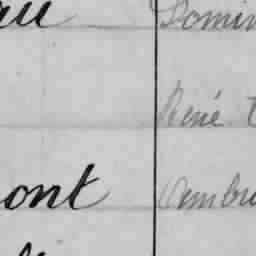 au Domin
René
ont Ambr